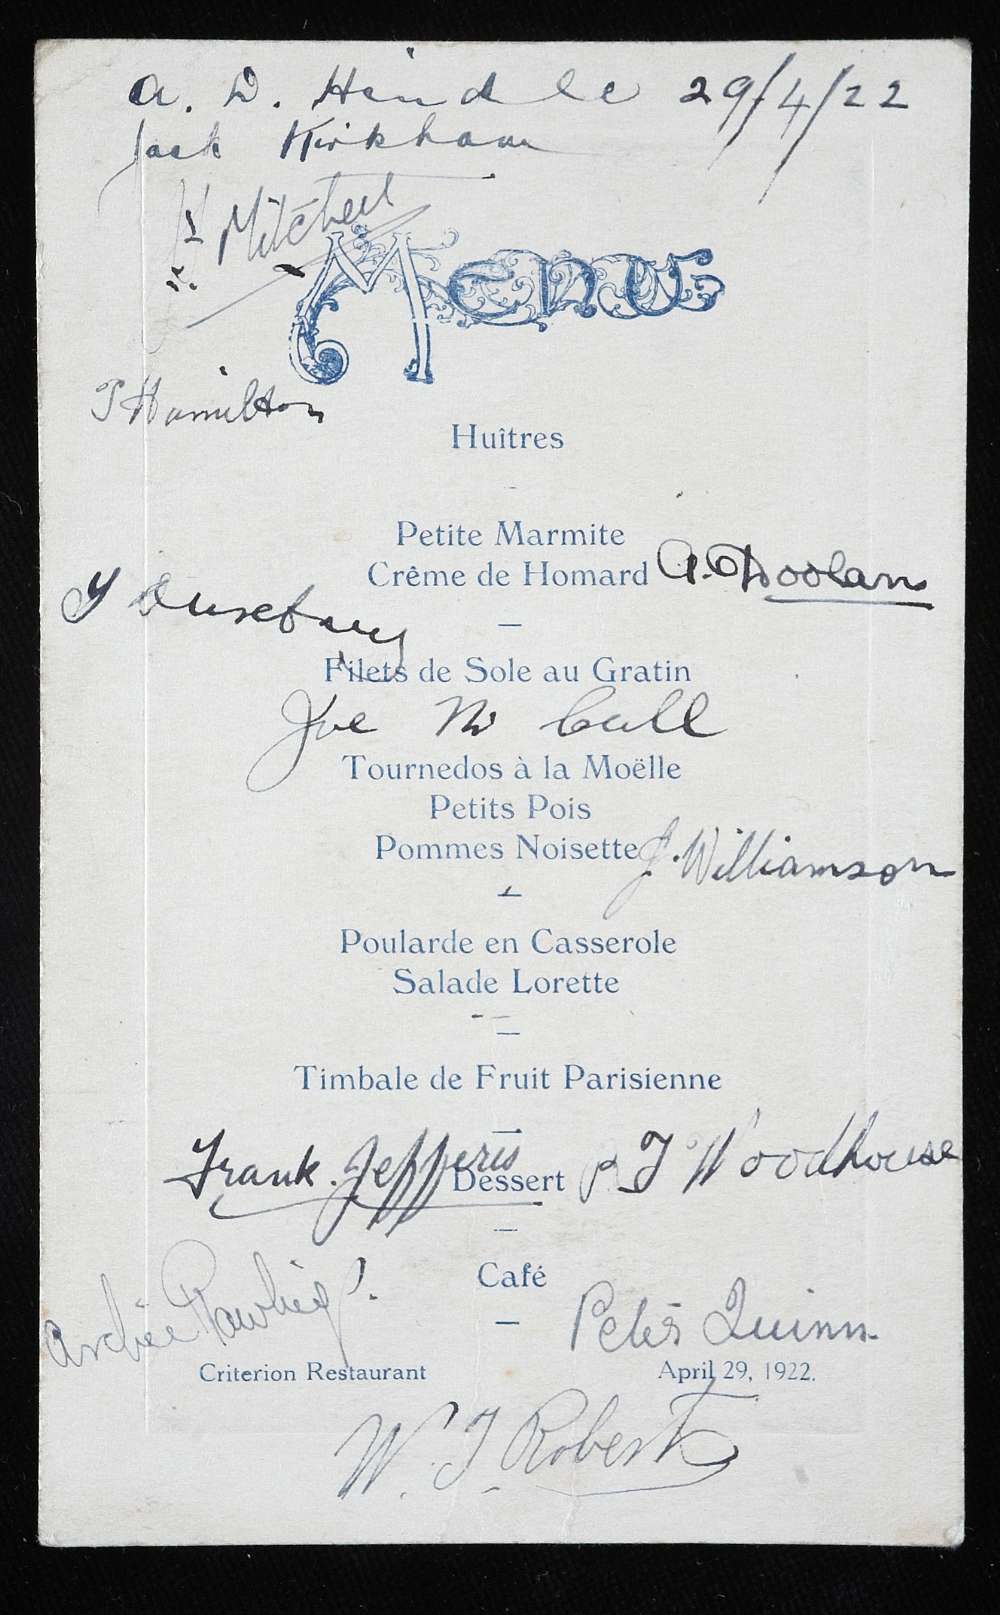 A. D. Hindle 29/4/22
Jack Kirkham
Mitchell
Menu
T Hamilton
Huîtres
Petite Marmite
Crême de Homard A. Doolan
J Duxbury
Filets de Sole au Gratin
Joe Mc Call
Tournedos à la Moëlle
Petits Pois
Pommes Noisette J. Williamson
Poularde en Casserole
Salade Lorette
Timbale de Fruit Parisienne
Frank. Jefferis
Dessert
R T Woodhouse
Café
Archie Rawlings
Peter Quinn.
Criterion Restaurant
April 29, 1922.
W. T. Roberts